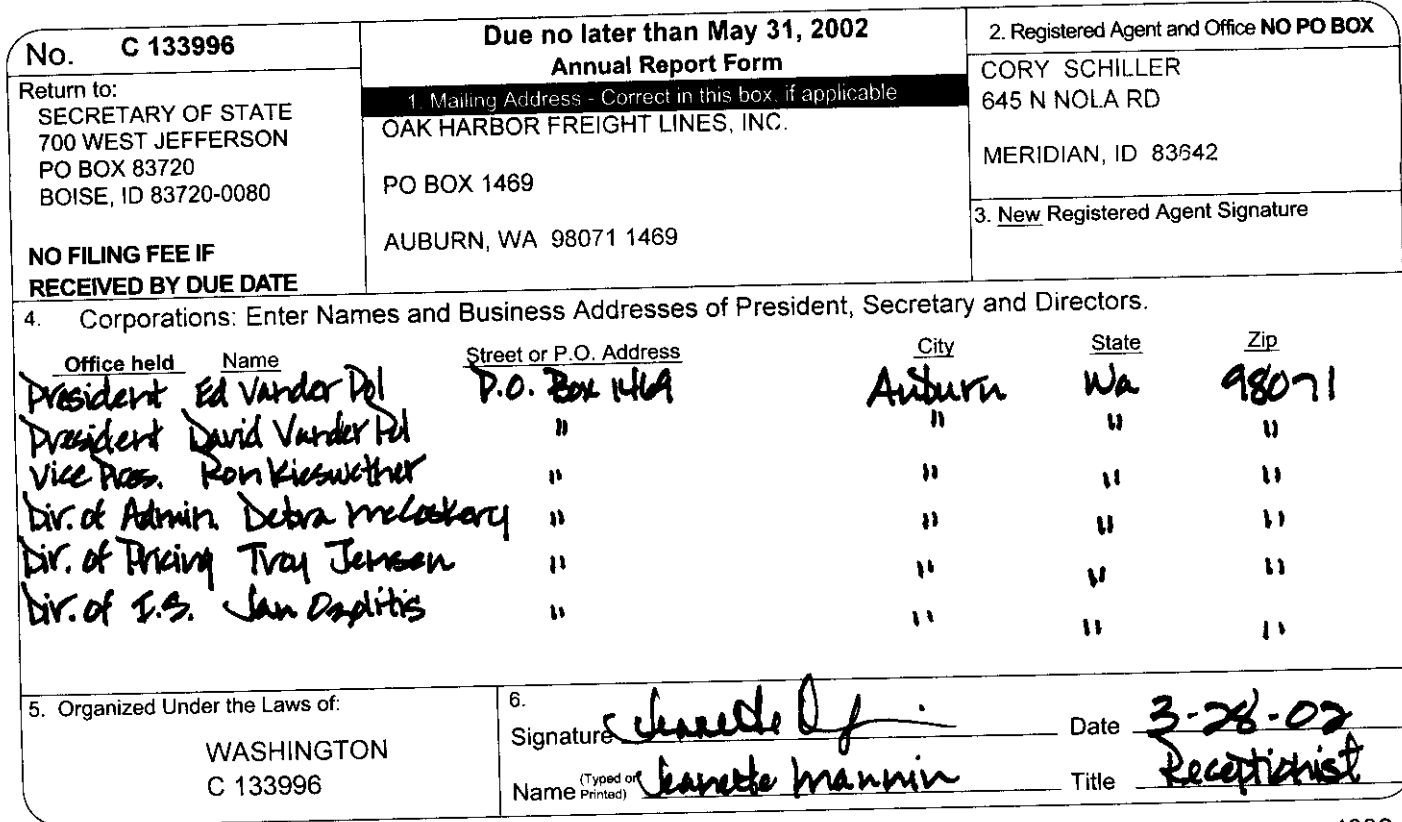 No. C 133996
Return to:
SECRETARY OF STATE
700 WEST JEFFERSON
PO BOX 83720
BOISE, ID 83720-0080
NO FILING FEE IF
RECEIVED BY DUE DATE
Due no later than May 31, 2002
Annual Report Form
1. Mailing Address - Correct in this box, if applicable
OAK HARBOR FREIGHT LINES, INC.
PO BOX 1469
AUBURN, WA 98071 1469
2. Registered Agent and Office NO PO BOX
CORY SCHILLER
645 N NOLA RD
MERIDIAN, ID 83642
3. New Registered Agent Signature
4. Corporations: Enter Names and Business Addresses of President, Secretary and Directors.
Office held Name Street or P.O. Address City State Zip
President Ed Vander Pol P.O. Box 1469 Auburn Wa 98071
President David Vander Pol " " " "
Vice Pres. Ron Kieswether " " " "
Dir. of Admin. Debra " " " "
Dir. of Pricing Troy Jensen " " " "
Dir. of I.S. Jan " " " "
5. Organized Under the Laws of:
WASHINGTON
C 133996
6.
Signature Jeanette Date 3-28-02
Name (Typed or Printed) Jeanette Mannin Title Receptionist